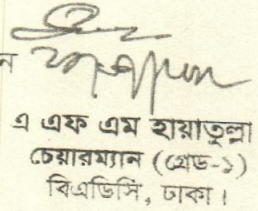 এ এফ এম হায়াতুল্লা
চেয়ারম্যান (গ্রেড-১)
বিএডিসি, ঢাকা।